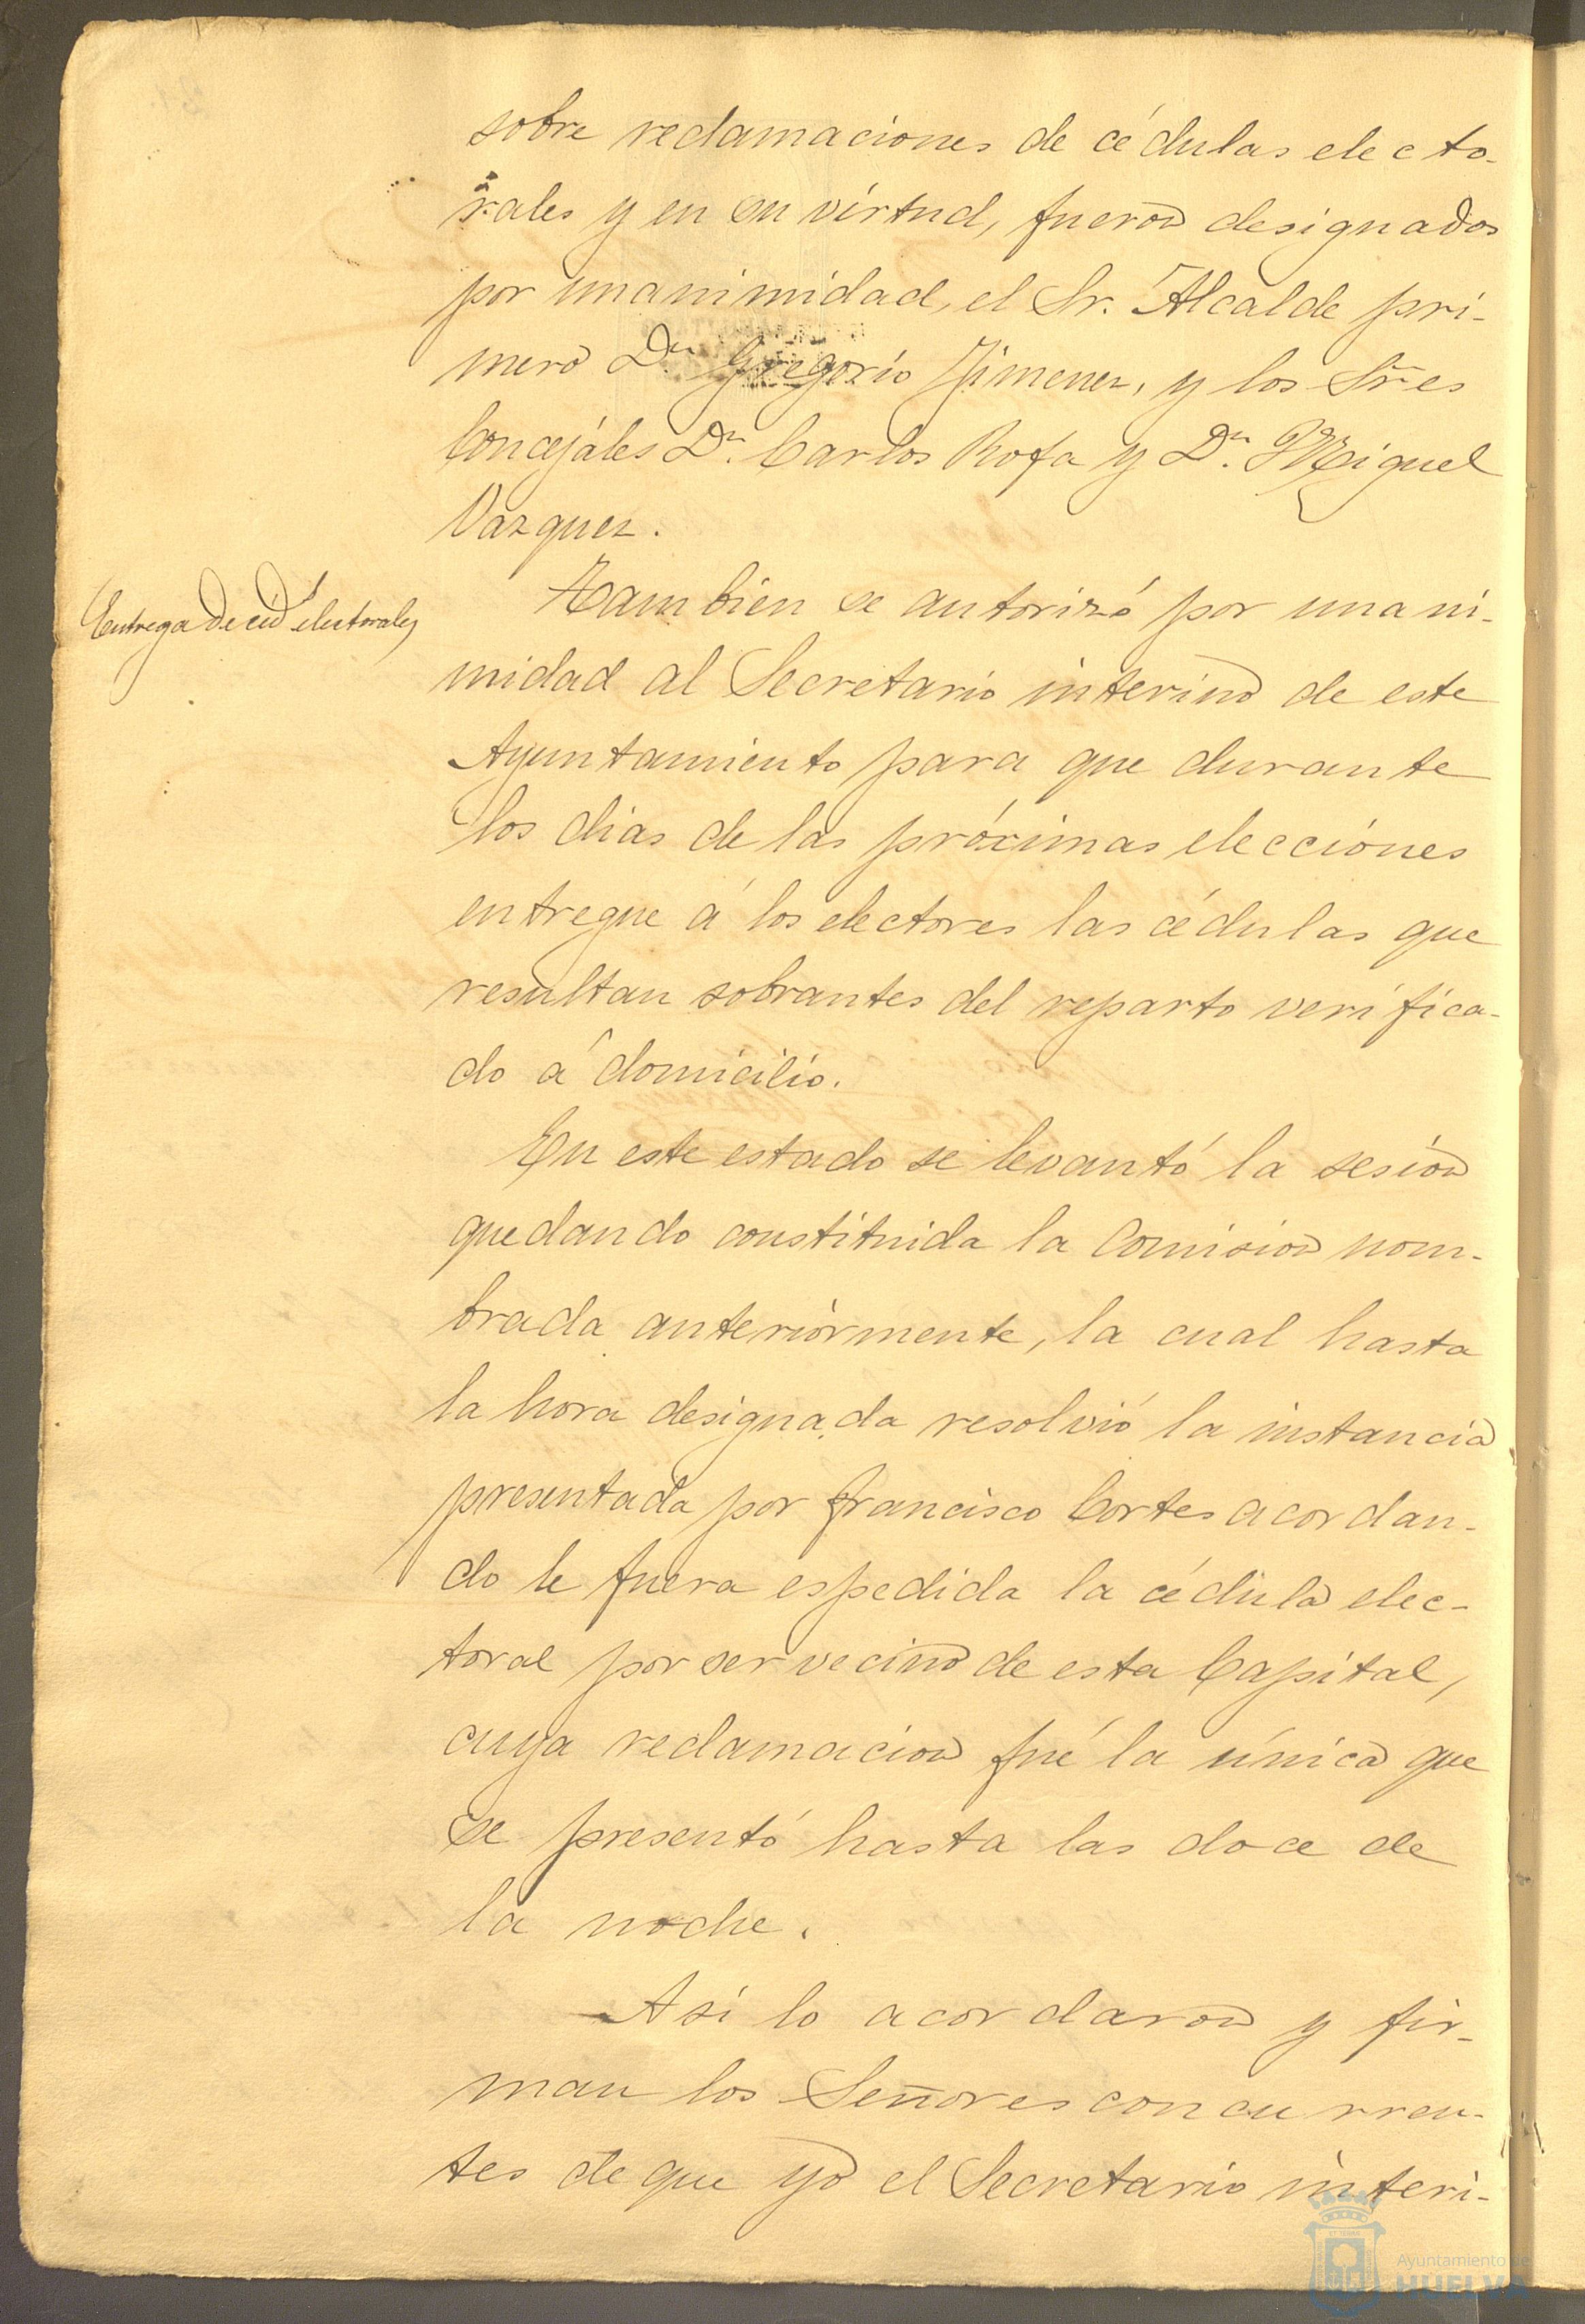 sobre reclamaciones de cédulas electo-
rales y en su virtud, fueron designados
por unanimidad, el Sr. Alcalde pri-
mero Dn. Gregorio Jimenez, y los Sres
Concejáles Dn. Carlos Rofa y Dn. Miguel
Vazquez.
Entrega de ced.s electorales
Tambien se autorizó por unani-
midad al Secretario interino de este
Ayuntamiento para que durante
los dias de las próximas elecciónes
entregue á los electores las cédulas que
resultan sobrantes del reparto verifica-
do á domicilio.
En este estado se levantó la sesión
quedando constituida la Comision nom-
brada anteriórmente, la cual hasta
la hora designada resolvió la instancia
presentada por Francisco Cortes acordan-
do le fuera espedida la cédula elec-
toral por ser vecino de esta Capital,
cuya reclamacion fué la única que
se presentó hasta las doce de
la noche.
Asi lo acordaron y fir-
man los Señores concurren-
tes de que yo el Secretario interi-
Ayuntamiento de
HUELVA